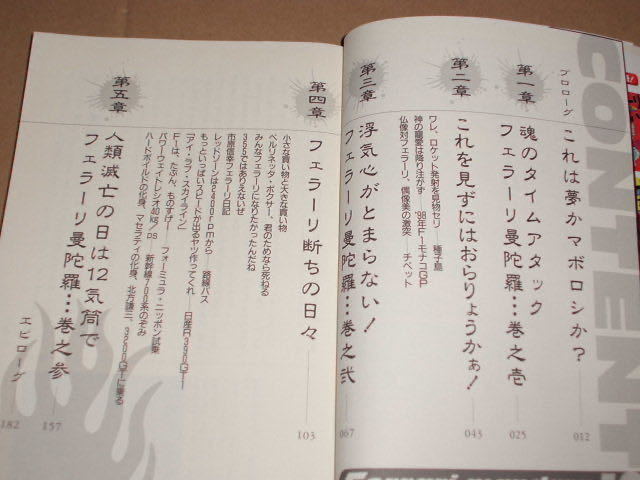 CONTENT
プロローグ
これは夢かマボロシか?
012
第一章
魂のタイムアタック
フェラーリ曼陀羅…巻之壱
025
第二章
これを見ずにはおらりょうかぁ!
043
ワレ、ロケット発射を見物セリ——種子島
神の寵愛は降り注がず——'98年F1モナコGP
仏像対フェラーリ、偶像美の激突——チベット
第三章
浮気心がとまらない!
フェラーリ曼陀羅…巻之弐
067
第四章
フェラーリ断ちの日々
103
小さな買い物と大きな買い物
ベルリネッタ・ボクサー、君のためなら死ねる
みんなフェラーリになりたかったんだね
355ではありえないぜ
市原信幸フェラーリ日記
レッドゾーンは2400rpmから——路線バス
もっといっぱいスピードが出るヤツ作ってくれ——日産R390GT1
「アイ・ラブ・スカイライン」
F1は、たぶん、ものすげー——フォーミュラ・ニッポン試乗
パワーウェイトレシオ40kg/ps——新幹線700系のぞみ
ハードボイルドの化身、マセラティの化身、北方謙三、3200GTに乗る
第五章
人類滅亡の日は12気筒で
フェラーリ曼陀羅…巻之参
157
エピローグ
182